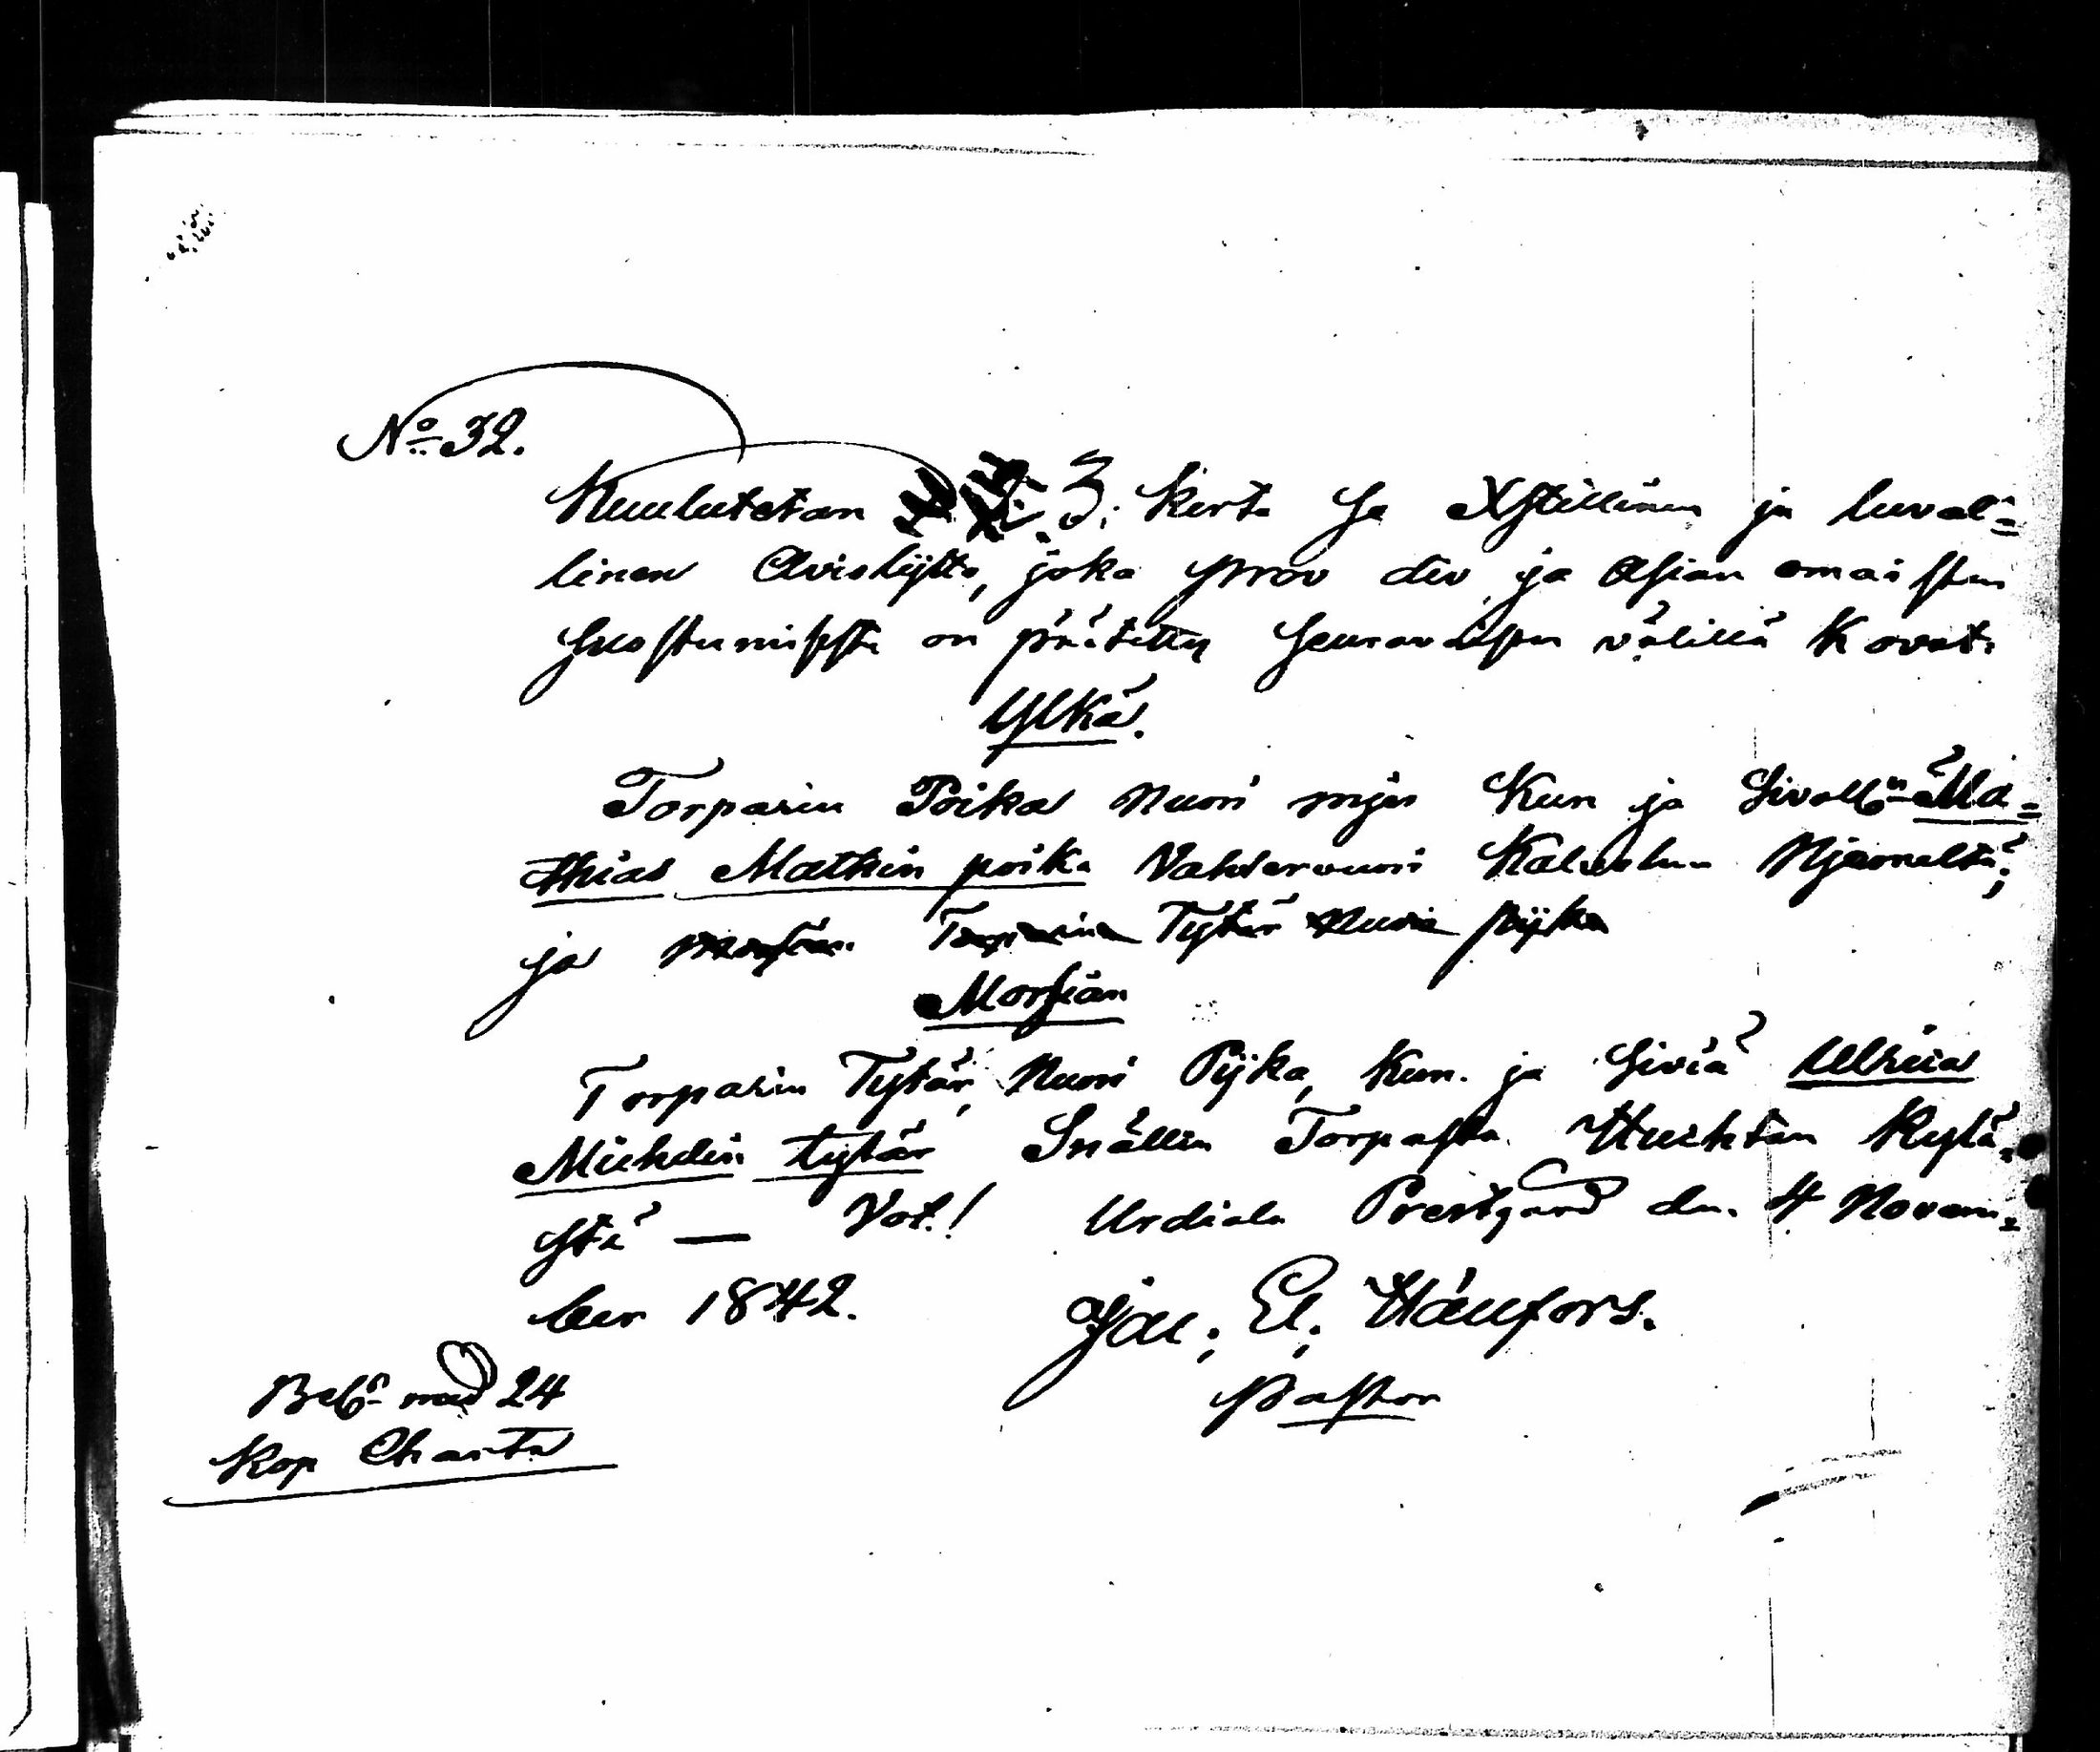 No 32.
Kuulutetan 3. Kerta Se Xstillinen ja luval=
linen Avioliitto, joka prov div ja Asian omaisten
Suostumisesta on päätetty Seuravaisten välillä K ovat.
Ylkä.
Torparin Poika Nuori mjes Kun ja Sivoll:n Ma=
thias Matkin poika Vahtervuori Njeomelta;
ja Morsian Torparin Tytär Nuori pijka
Morsian
Torparin Tytär, Nuori Pijka, Kun. ja Siviä Ulkiia
Michelin tytär Snällin Torpasta Huhtan Kylä=
stä — Vot! Urdiala Prestgård den 4 Novem=
ber 1842. Jac. El. Hänfors.
Pastor
Bel:s med 24
Kop Charta